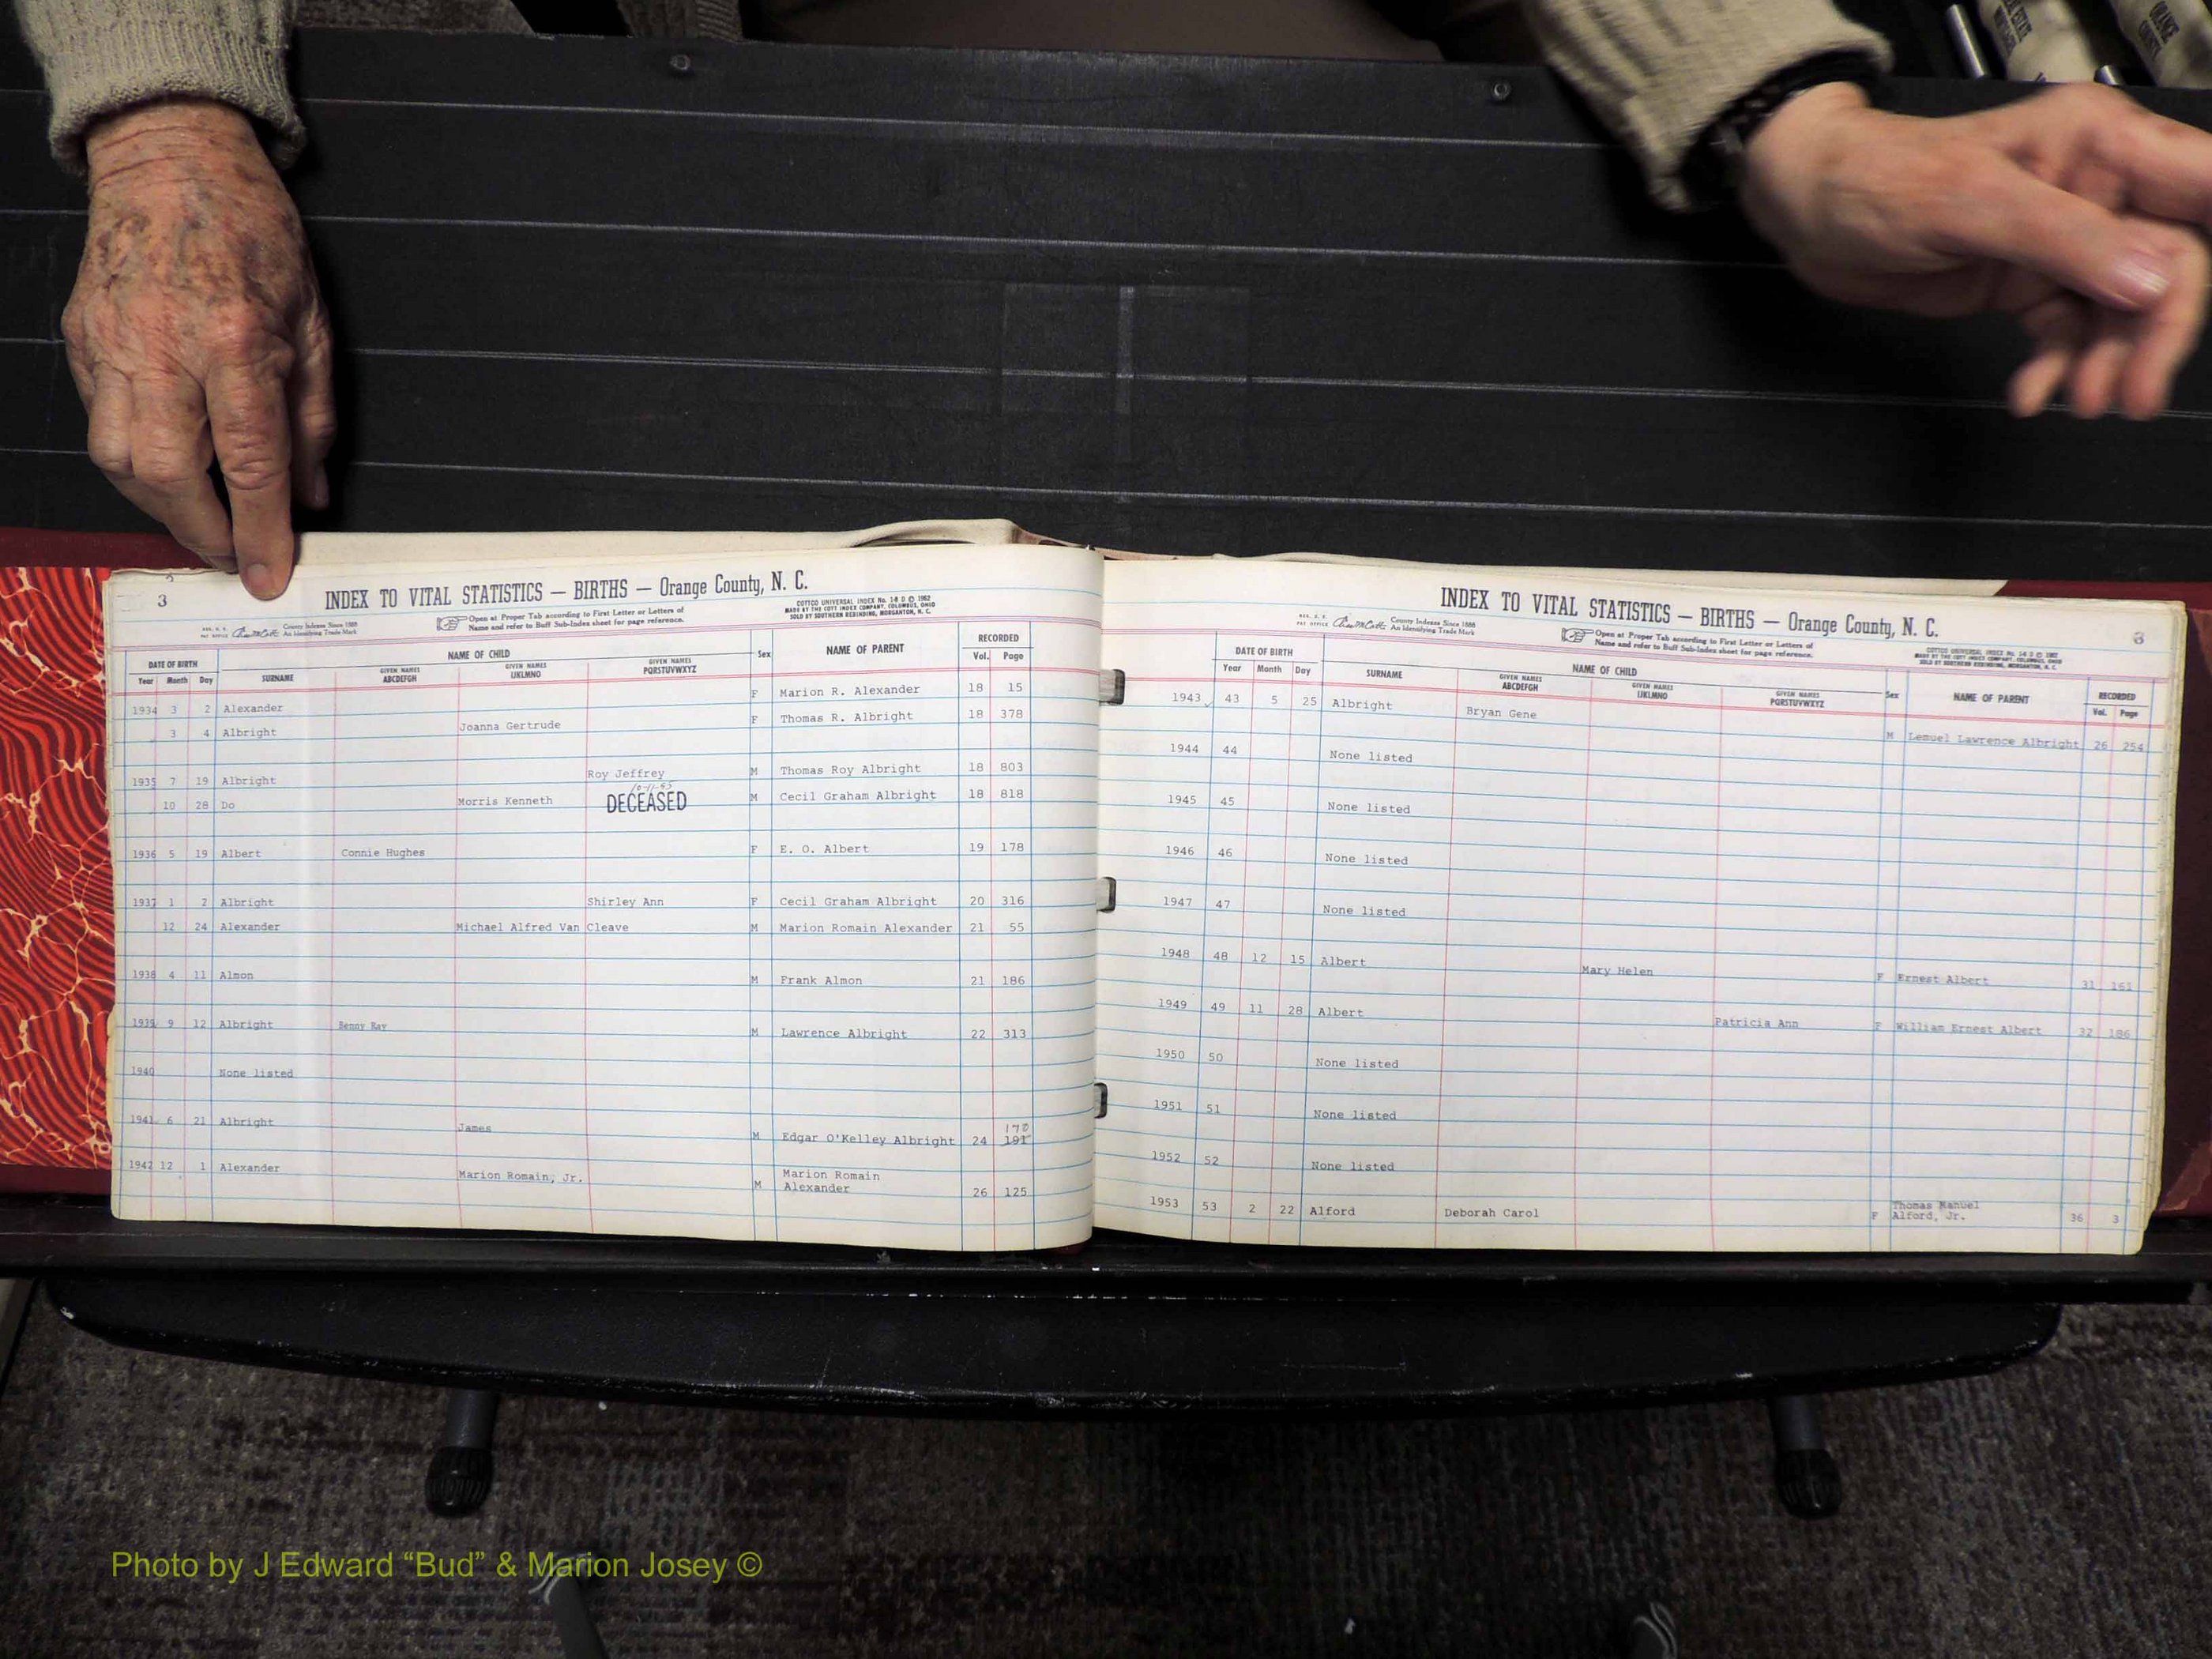 3
INDEX TO VITAL STATISTICS — BIRTHS — Orange County, N. C.
County Indexes Since 1888
An Identifying Trade Mark
Open at Proper Tab according to First Letter or Letters of
Name and refer to Buff Sub-Index sheet for page reference.
COTTCO UNIVERSAL INDEX No. 1-8 D © 1962
MADE BY THE COTT INDEX COMPANY, COLUMBUS, OHIO
SOLD BY SOUTHERN REBINDING, MORGANTON, N. C.
DATE OF BIRTH NAME OF CHILD Sex NAME OF PARENT RECORDED
Year Month Day SURNAME GIVEN NAMES ABCDEFGH GIVEN NAMES IJKLMNO GIVEN NAMES PQRSTUVWXYZ Vol. Page
1934 3 2 Alexander F Marion R. Alexander 18 15
3 4 Albright Joanna Gertrude F Thomas R. Albright 18 378
1935 7 19 Albright Roy Jeffrey M Thomas Roy Albright 18 803
10 28 Do Morris Kenneth DECEASED M Cecil Graham Albright 18 818
1936 5 19 Albert Connie Hughes F E. O. Albert 19 178
1937 1 2 Albright Shirley Ann F Cecil Graham Albright 20 316
12 24 Alexander Michael Alfred Van Cleave M Marion Romain Alexander 21 55
1938 4 11 Almon M Frank Almon 21 186
1939 9 12 Albright Benny Ray M Lawrence Albright 22 313
1940 None listed
1941 6 21 Albright James M Edgar O'Kelley Albright 24 191 170
1942 12 1 Alexander Marion Romain, Jr. M Marion Romain
Alexander 26 125
INDEX TO VITAL STATISTICS — BIRTHS — Orange County, N. C.
3
County Indexes Since 1888
An Identifying Trade Mark
Open at Proper Tab according to First Letter or Letters of
Name and refer to Buff Sub-Index sheet for page reference.
COTTCO UNIVERSAL INDEX No. 1-8 D © 1962
MADE BY THE COTT INDEX COMPANY, COLUMBUS, OHIO
SOLD BY SOUTHERN REBINDING, MORGANTON, N. C.
DATE OF BIRTH NAME OF CHILD Sex NAME OF PARENT RECORDED
Year Month Day SURNAME GIVEN NAMES ABCDEFGH GIVEN NAMES IJKLMNO GIVEN NAMES PQRSTUVWXYZ Vol. Page
1943 43 5 25 Albright Bryan Gene M Lemuel Lawrence Albright 26 254
1944 44 None listed
1945 45 None listed
1946 46 None listed
1947 47 None listed
1948 48 12 15 Albert Mary Helen F Ernest Albert 31 161
1949 49 11 28 Albert Patricia Ann F William Ernest Albert 32 186
1950 50 None listed
1951 51 None listed
1952 52 None listed
1953 53 2 22 Alford Deborah Carol F Thomas Manuel
Alford, Jr. 36 3
Photo by J Edward “Bud” & Marion Josey ©